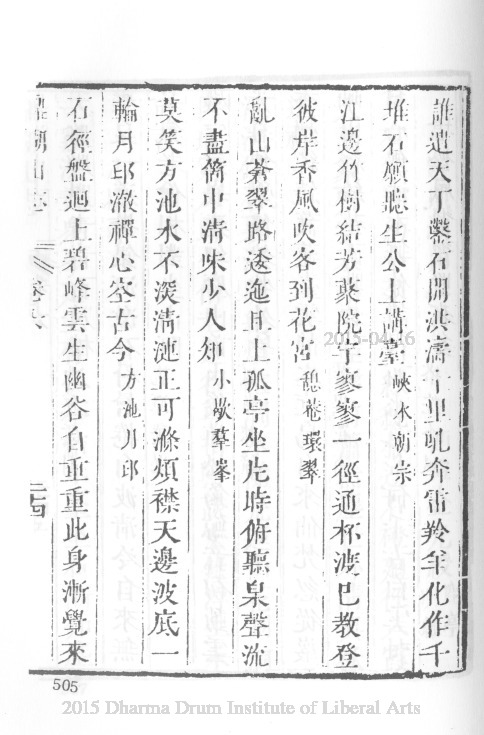 誰遣天丁鑿石開洪濤千里吼奔雷羚羊化作千
堆石願聽生公上講臺 峽水朝宗
江邊竹樹結芳蕤院宇寥寥一徑通杯渡已教登
彼岸香風吹客到花宮 憩菴環翠
亂山蒼翠路逶迤且上孤亭坐片時俯聽泉聲流
不盡箇中清味少人知 小歇羣峯
莫笑方池水不深清漣正可滌煩襟天邊波底一
輪月印澈禪心空古今 方池月印
石徑盤迴上碧峰雲生幽谷自重重此身漸覺來
鼎湖山志 卷六 二十四
505
2015-04-16
2015 Dharma Drum Institute of Liberal Arts